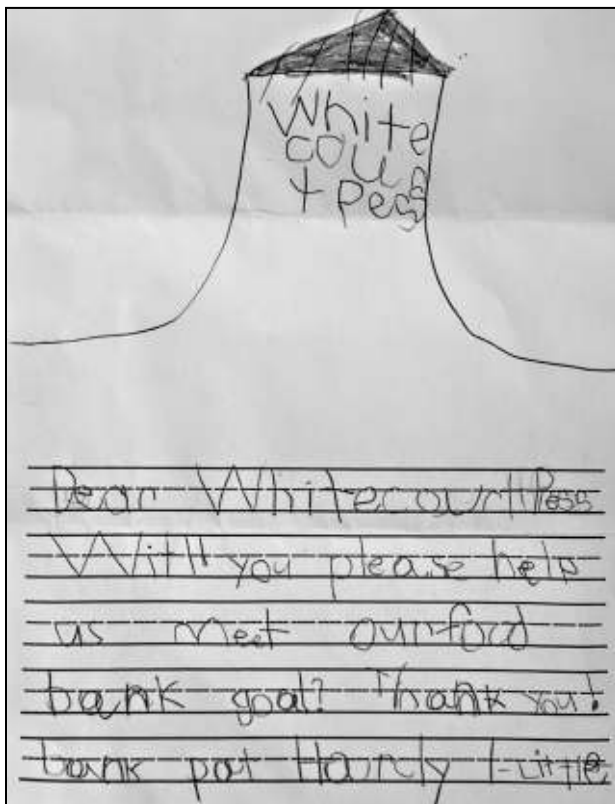 White
cour
t Pess
Dear Whitecourt Pess
Will you please help
us meet our food
bank goal? Thank you!
bank pat Hardy